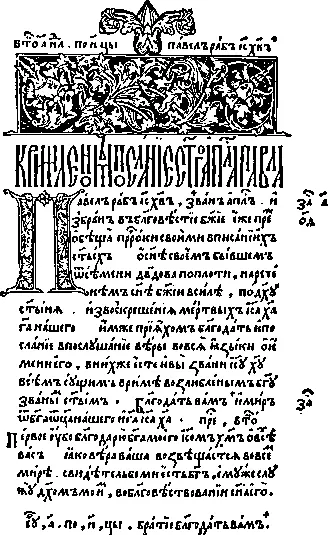 павелъ рабъ і҆с҃ хв҃ъ
К римлѧномъ послание ст҃го ап҃ла павла
Павелъ рабъ і҆с҃ хв҃ъ, званъ ап҃лъ. и
збранъ въ бл҃говѣстїе бж҃їе еже пре
ѡбѣща прⷪ҇рки своими в писанїихъ
ст҃ыхъ ѡ сн҃ѣ своемъ бывшемъ
ѿ сѣмени дв҃дова по плоти, нарече
нѣмъ сн҃ѣ бж҃їи в силѣ, по дх҃у
ст҃ыни из воскрешенїѧ мертвыхъ іс҃а х҃а
г҃а нашего имже прїѧхомъ благодать и по
сланїе в послушанїе вѣры во всѣхъ ꙗзыцѣхъ ѡ и
мени его, в нихже есте и вы звани іс҃у х҃у
всѣмъ сущимъ в римѣ возлюбленымъ бг҃у
званымъ ст҃ымъ . Благодать вамъ и миръ
ѿ бг҃а ѿц҃а нашего и г҃а іс҃а х҃а . пре , втѡ
Первое ѹбо благодарю бг҃а моего іс҃ хм҃ъ ѡ всѣхъ
васъ ꙗко вѣра ваша возвѣщается во всемъ
мирѣ . свидѣтель бо ми есть бг҃ъ, емуже слу
жу дх҃омъ моимъ, во благовѣствованїи сн҃а его .
а҃ . по , и҃ , цы . братїе благодать вамъ